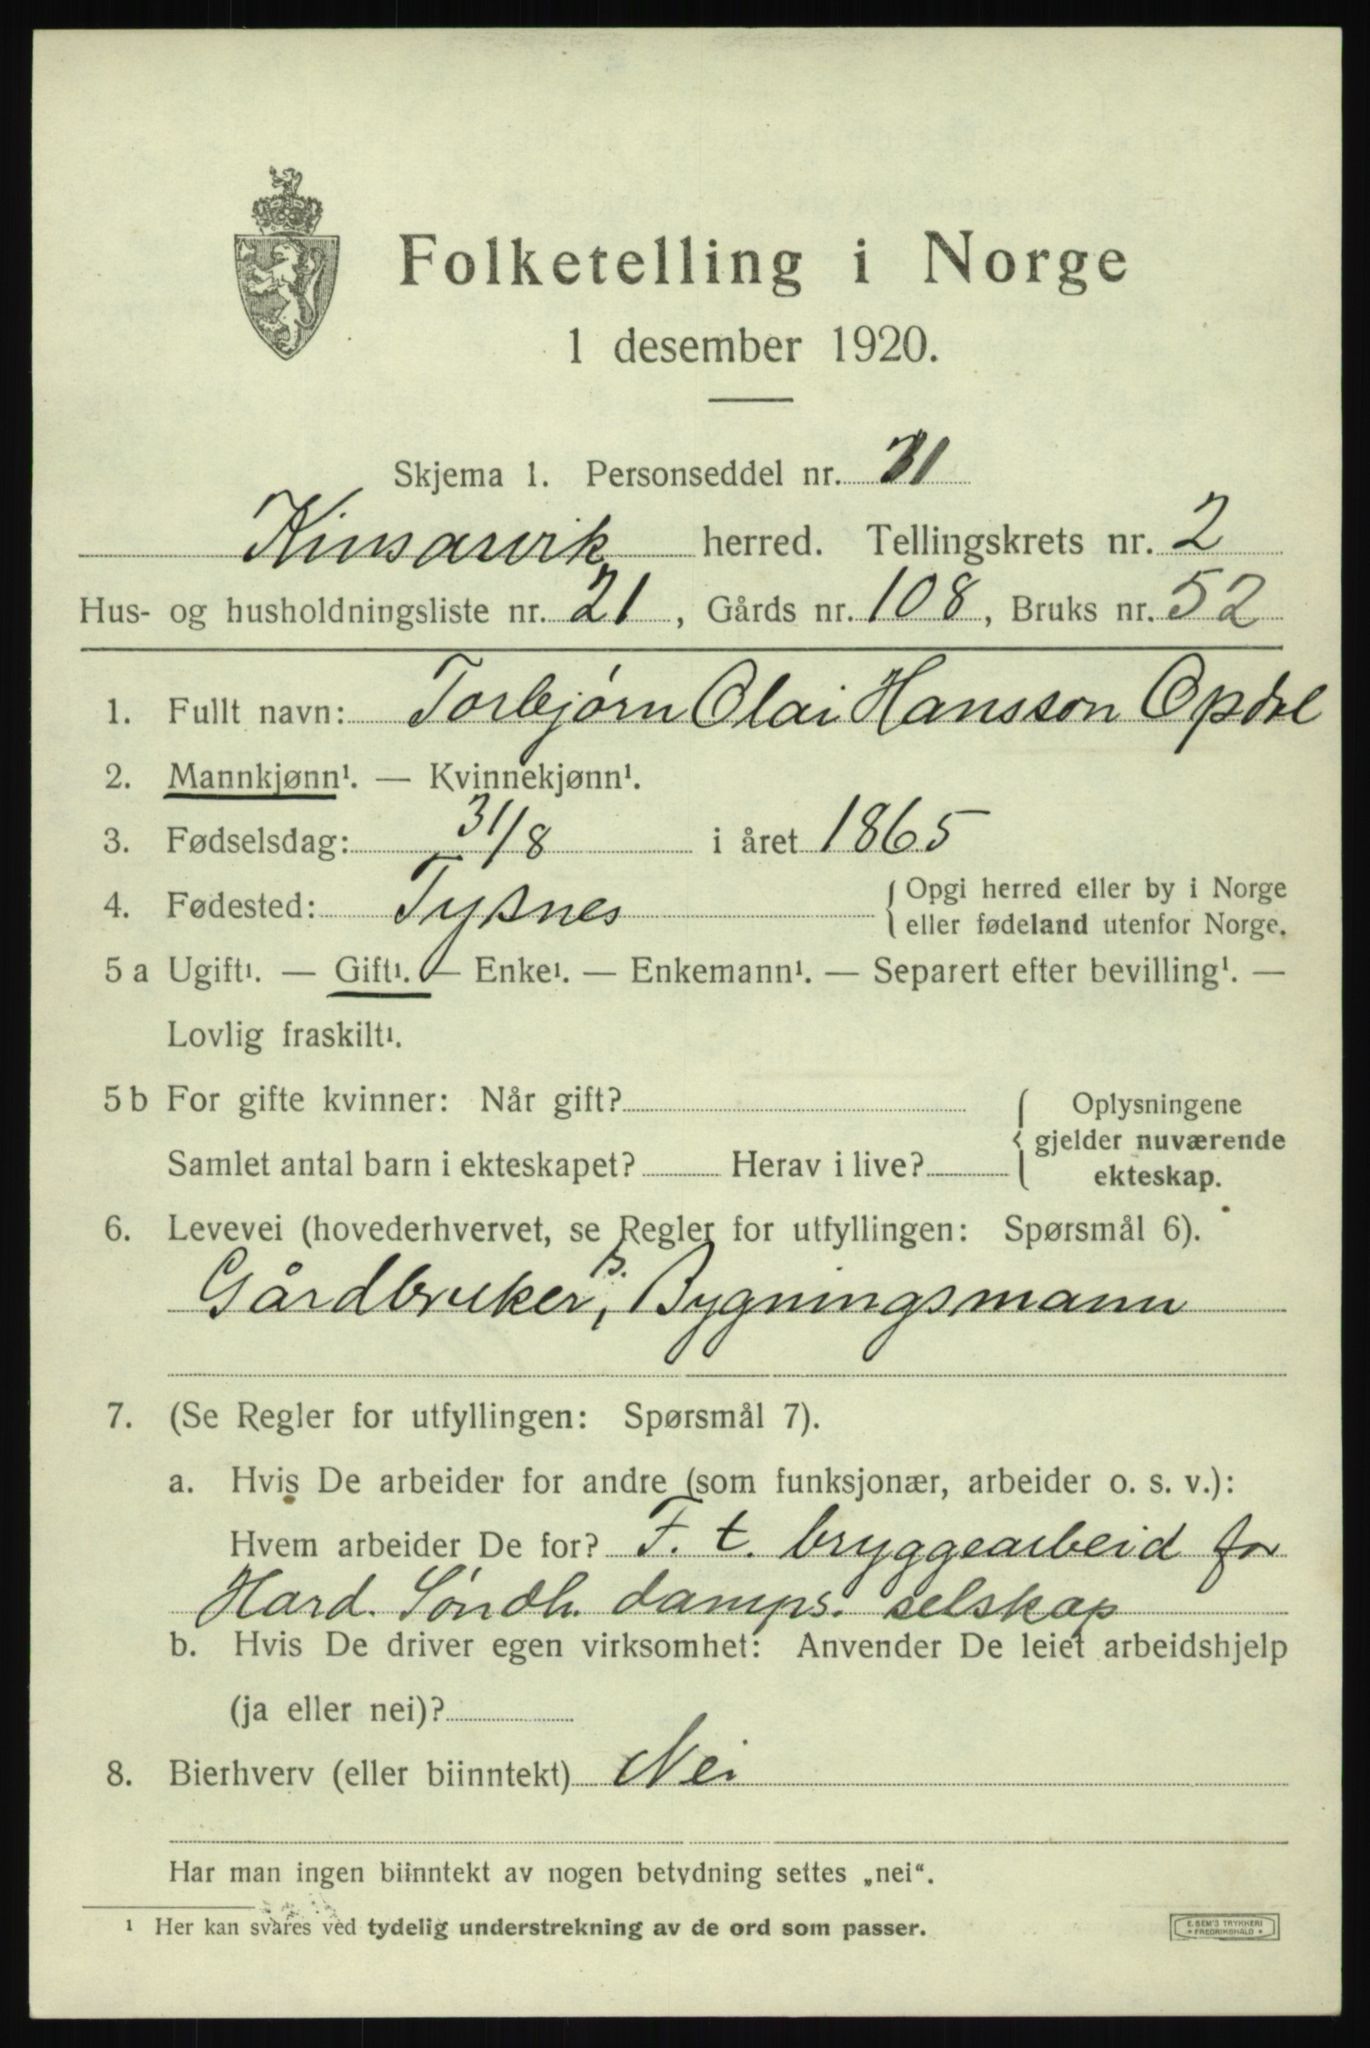 Folketelling i Norge
1 desember 1920.
Skjema 1. Personseddel nr. 31
Kinsarvik herred. Tellingskrets nr. 2
Hus- og husholdningsliste nr. 21, Gårds nr. 108, Bruks nr. 52
1. Fullt navn: Torbjørn Olai Hansson Opdal
2. Mannkjønn¹. — Kvinnekjønn¹.
3. Fødselsdag: 31/8 i året 1865
4. Fødested: Tysnes { Opgi herred eller by i Norge
eller fødeland utenfor Norge.
5 a Ugift¹. — Gift¹. — Enke¹. — Enkemann¹. — Separert efter bevilling¹. —
Lovlig fraskilt¹.
5 b For gifte kvinner: Når gift? { Oplysningene
gjelder nuværende
Samlet antal barn i ekteskapet? Herav i live? ekteskap.
6. Levevei (hovederhvervet, se Regler for utfyllingen: Spørsmål 6).
s.
Gårdbruker, Bygningsmann
7. (Se Regler for utfyllingen: Spørsmål 7).
a. Hvis De arbeider for andre (som funksjonær, arbeider o. s. v.):
Hvem arbeider De for? F. t. bryggearbeid for
Hard. Søndh. damps. selskap
b. Hvis De driver egen virksomhet: Anvender De leiet arbeidshjelp
(ja eller nei)?
8. Bierhverv (eller biinntekt) Nei
Har man ingen biinntekt av nogen betydning settes „nei“.
¹ Her kan svares ved tydelig understrekning av de ord som passer.
E. SEM'S TRYKKERI
FREDRIKSHALD